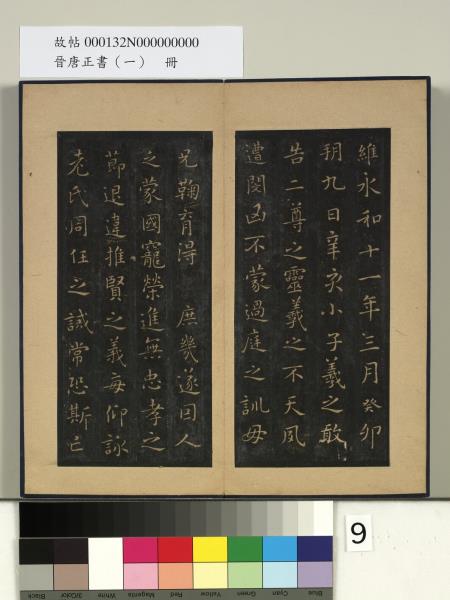 故帖 000132N000000000
晉唐正書（一）　冊
維永和十一年三月癸卯
朔九日辛亥小子羲之敢
告二尊之靈羲之不天夙
遭閔凶不蒙過庭之訓母
兄鞠育得　庶幾遂因人
之蒙國寵榮進無忠孝之
節退違推賢之義每仰詠
老氏周任之誡常恐斯亡
9
Black
3/Color
White
Magenta
Red
Yellow
Green
Cyan
Blue